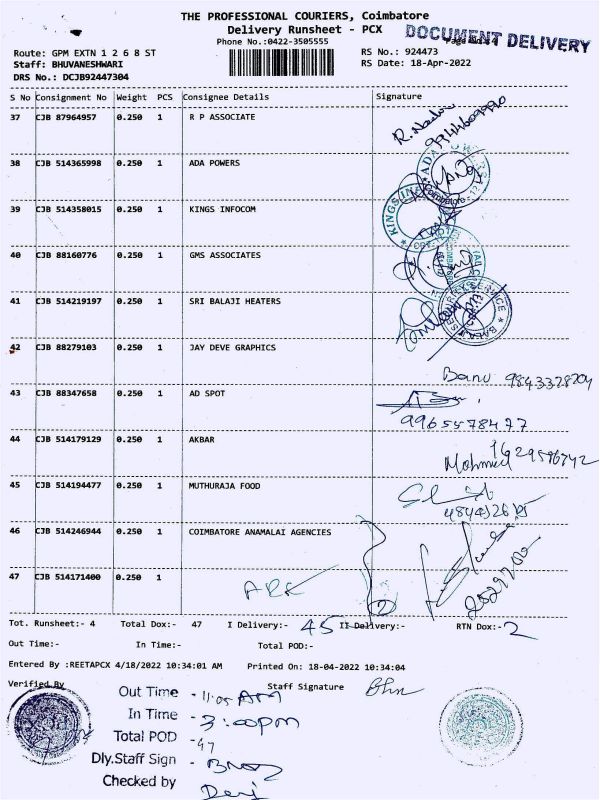 THE PROFESSIONAL COURIERS, Coimbatore
Delivery Runsheet - PCX
DOCUMENT DELIVERY
Phone No.:0422-3505555
Route: GPM EXTN 1 2 6 8 ST
RS No.: 924473
Staff: BHUVANESHWARI
RS Date: 18-Apr-2022
DRS No.: DCJB92447304
S No Consignment No Weight PCS Consignee Details Signature
37 CJB 87964957 0.250 1 R P ASSOCIATE
38 CJB 514365998 0.250 1 ADA POWERS
39 CJB 514358015 0.250 1 KINGS INFOCOM
40 CJB 88160776 0.250 1 GMS ASSOCIATES
41 CJB 514219197 0.250 1 SRI BALAJI HEATERS
42 CJB 88279103 0.250 1 JAY DEVE GRAPHICS
Banu 9843328204
43 CJB 88347658 0.250 1 AD SPOT
9965578477
44 CJB 514179129 0.250 1 AKBAR
Mohmed
45 CJB 514194477 0.250 1 MUTHURAJA FOOD
46 CJB 514246944 0.250 1 COIMBATORE ANAMALAI AGENCIES
47 CJB 514171400 0.250 1
Tot. Runsheet:- 4 Total Dox:- 47 I Delivery:- 45 II Delivery:- RTN Dox:- 2
Out Time:- In Time:- Total POD:-
Entered By :REETAPCX 4/18/2022 10:34:01 AM Printed On: 18-04-2022 10:34:04
Verified By Staff Signature
Out Time - 11:05 AM
In Time - 3:00pm
Total POD - 47
Dly.Staff Sign -
Checked by